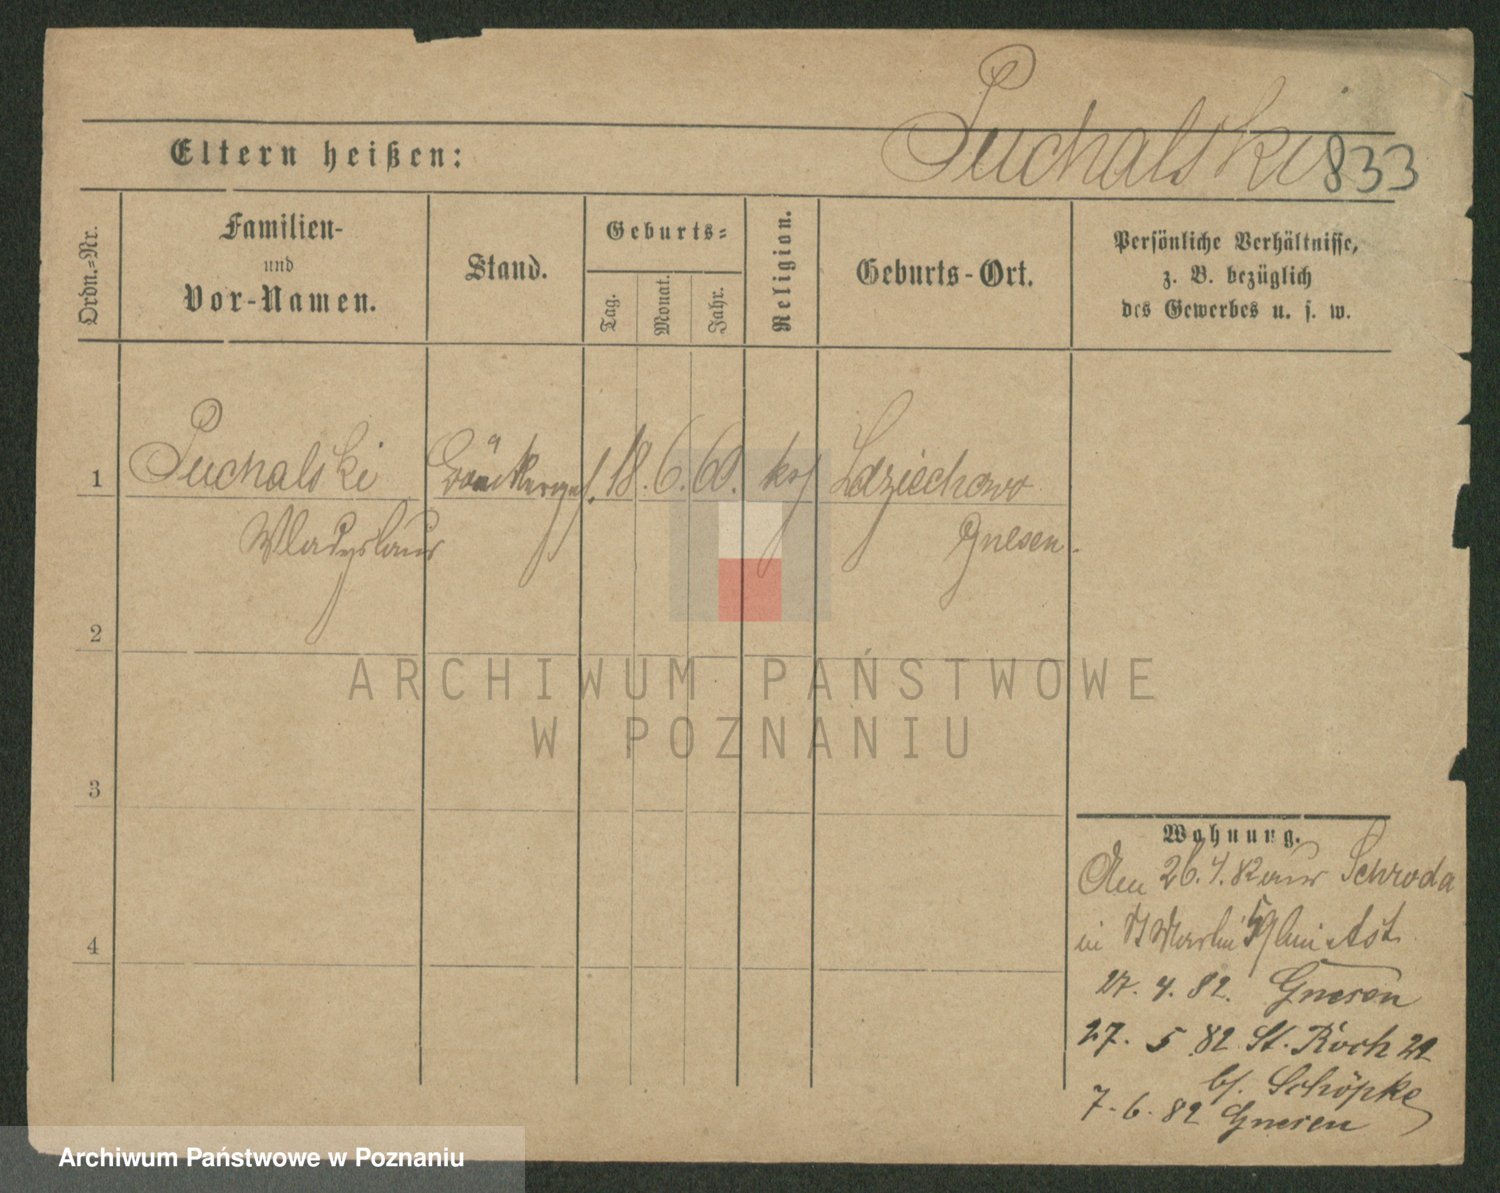 Puchalski 833
Eltern heißen:
Ordn.-Nr.
Familien-
und
Vor-Namen.
Stand.
Geburts-
Tag.
Monat.
Jahr.
Religion.
Geburts-Ort.
Persönliche Verhältnisse,
z. B. bezüglich
des Gewerbes u. s. w.
1 Puchalski Bäckerges. 18. 6. 60. kath Ldziechowo
Wladyslaus Gnesen.
2
3
4
Wohnung.
Am 26.4.82 aus Schroda
in St Martin 59 bei
27. 4. 82. Gnesen
27. 5 82 St. Roch 22
bei Schöpke
7. 6. 82 Gnesen
ARCHIWUM PAŃSTWOWE
W POZNANIU
Archiwum Państwowe w Poznaniu